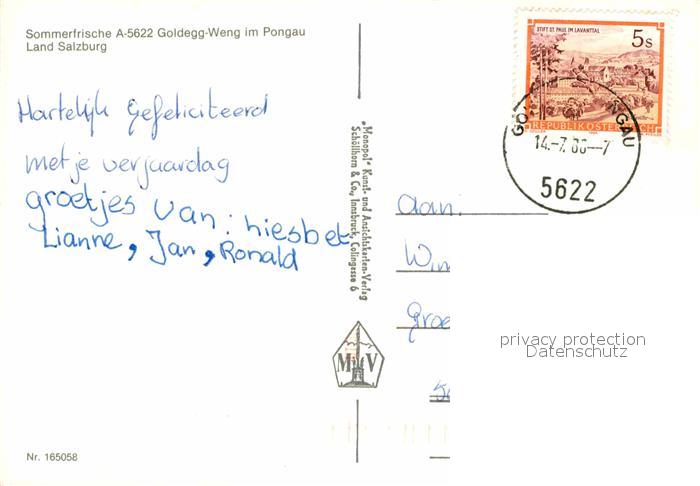 Sommerfrische A-5622 Goldegg-Weng im Pongau
Land Salzburg
Hartelijk gefeliciteerd
met je verjaardag
groetjes van: hiesbet
Lianne, Jan, Ronald
"Monopol" Kunst- und Ansichtskarten-Verlag
Schöllhorn & Co., Innsbruck, Colingasse 6
MV
Nr. 165058
STIFT ST. PAUL IM LAVANTTAL
5s
REPUBLIK ÖSTERREICH
NGAU
5622
Aan:
privacy protection
Datenschutz